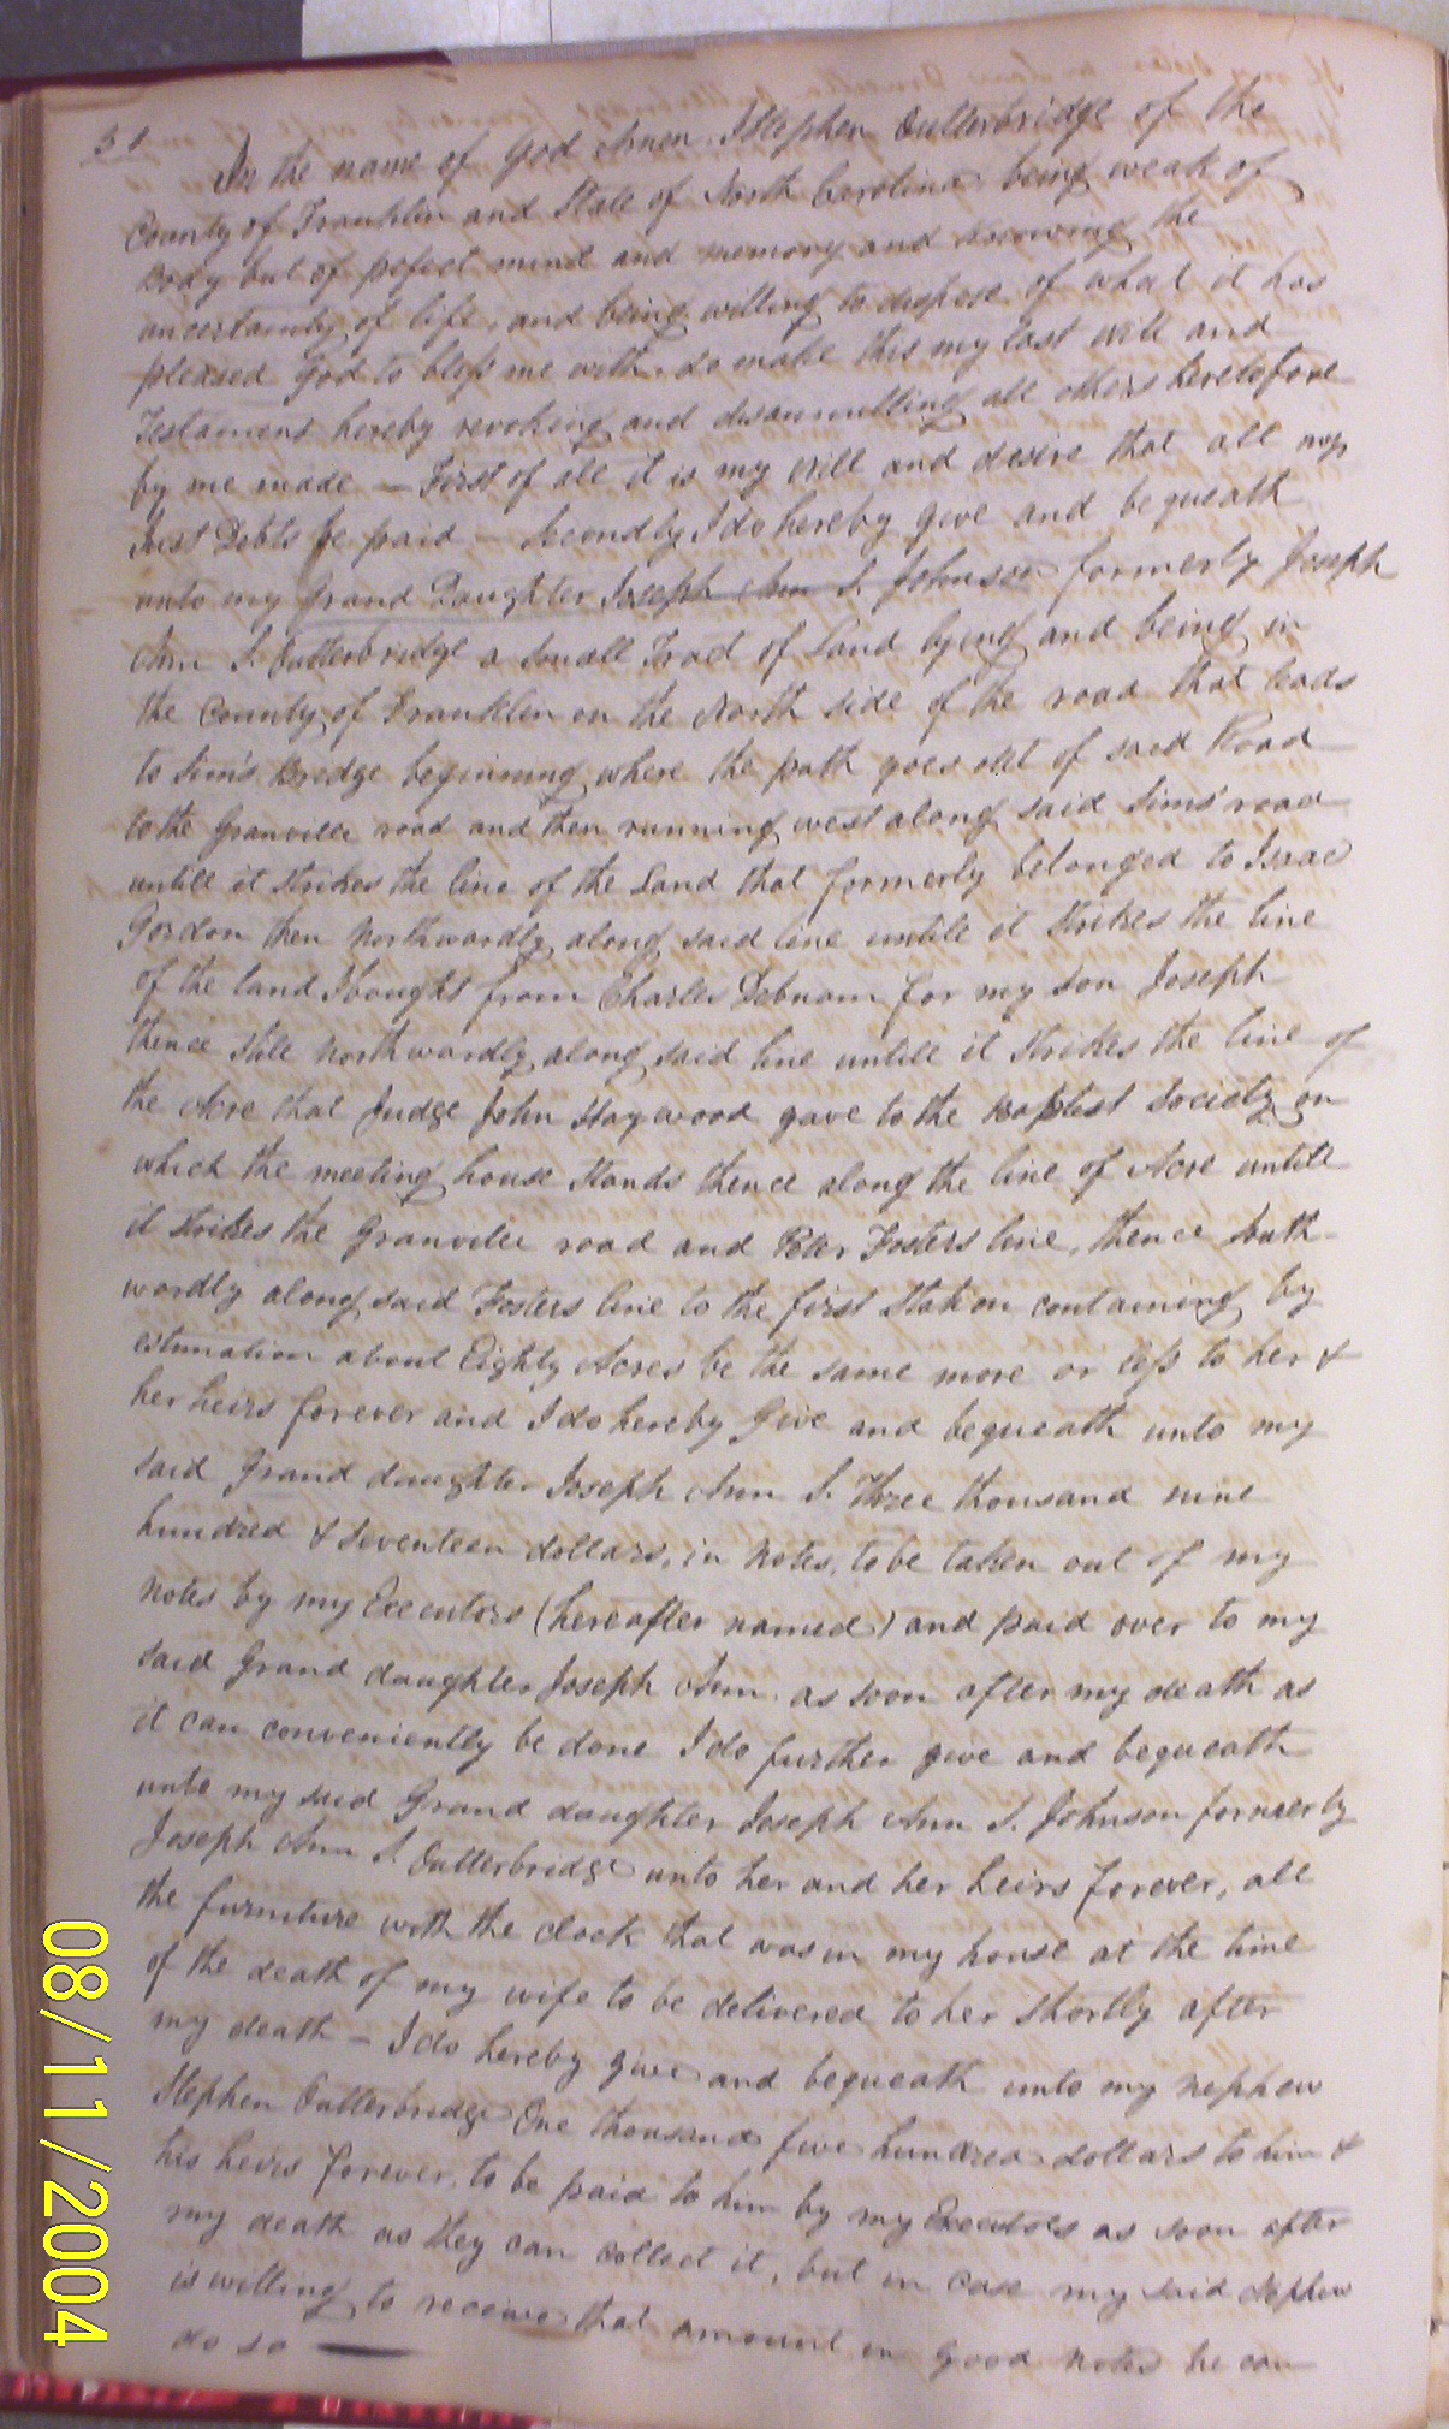 31
In the name of God Amen. I Stephen Outterbridge of the
County of Franklin and State of North Carolina being weak of
Body but of pefect mind and memory and knowing the
uncertainty of life, and being willing to dispose of what it has
pleased God to bless me with. do make this my last will and
Testament hereby revoking and disannulling all others heretofore
by me made — First of all it is my will and desire that all my
Just Debts be paid — Secondly I do hereby give and bequeath
unto my Grand Daughter Joseph Ann S. Johnson formerly Joseph
Ann S. Outterbridge a small Tract of Land lying and being in
the County of Franklin on the North side of the road that leads
to Sim's Bridge beginning where the path goes out of said Road
to the Granville road and then running west along said Sims' road
untill it strikes the line of the Land that formerly belonged to Isaac
Gordon then Northwardly along said line untill it strikes the line
of the land I bought from Charles Debnam for my son Joseph
thence still Northwardly along said line untill it strikes the line of
the Acre that Judge John Haywood gave to the Baptist Society on
which the meeting house stands thence along the line of Acre untill
it strikes the Granville road and Peter Fosters line, thence South-
wardly along said Fosters line to the first Station containing by
estimation about Eighty Acres be the same more or less to her &
her heirs forever and I do hereby Give and bequeath unto my
said Grand daughter Joseph Ann S. Three thousand nine
hundred & seventeen dollars, in Notes, to be taken out of my
Notes by my Executors (hereafter named) and paid over to my
said Grand daughter Joseph Ann. as soon after my death as
it can conveniently be done I do further give and bequeath
unto my said Grand daughter Joseph Ann S. Johnson formerly
Joseph Ann S. Outterbridge unto her and her heirs forever, all
the furniture with the clock that was in my house at the time
of the death of my wife to be delivered to her shortly after
my death — I do hereby give and bequeath unto my Nephew
Stephen Outterbridge One thousand five hundred dollars to him &
his heirs forever. to be paid to him by my Executors as soon after
my death as they can collect it, but in case my said Nephew
is willing to receive that amount in good Notes he can
do so —
08/11/2004